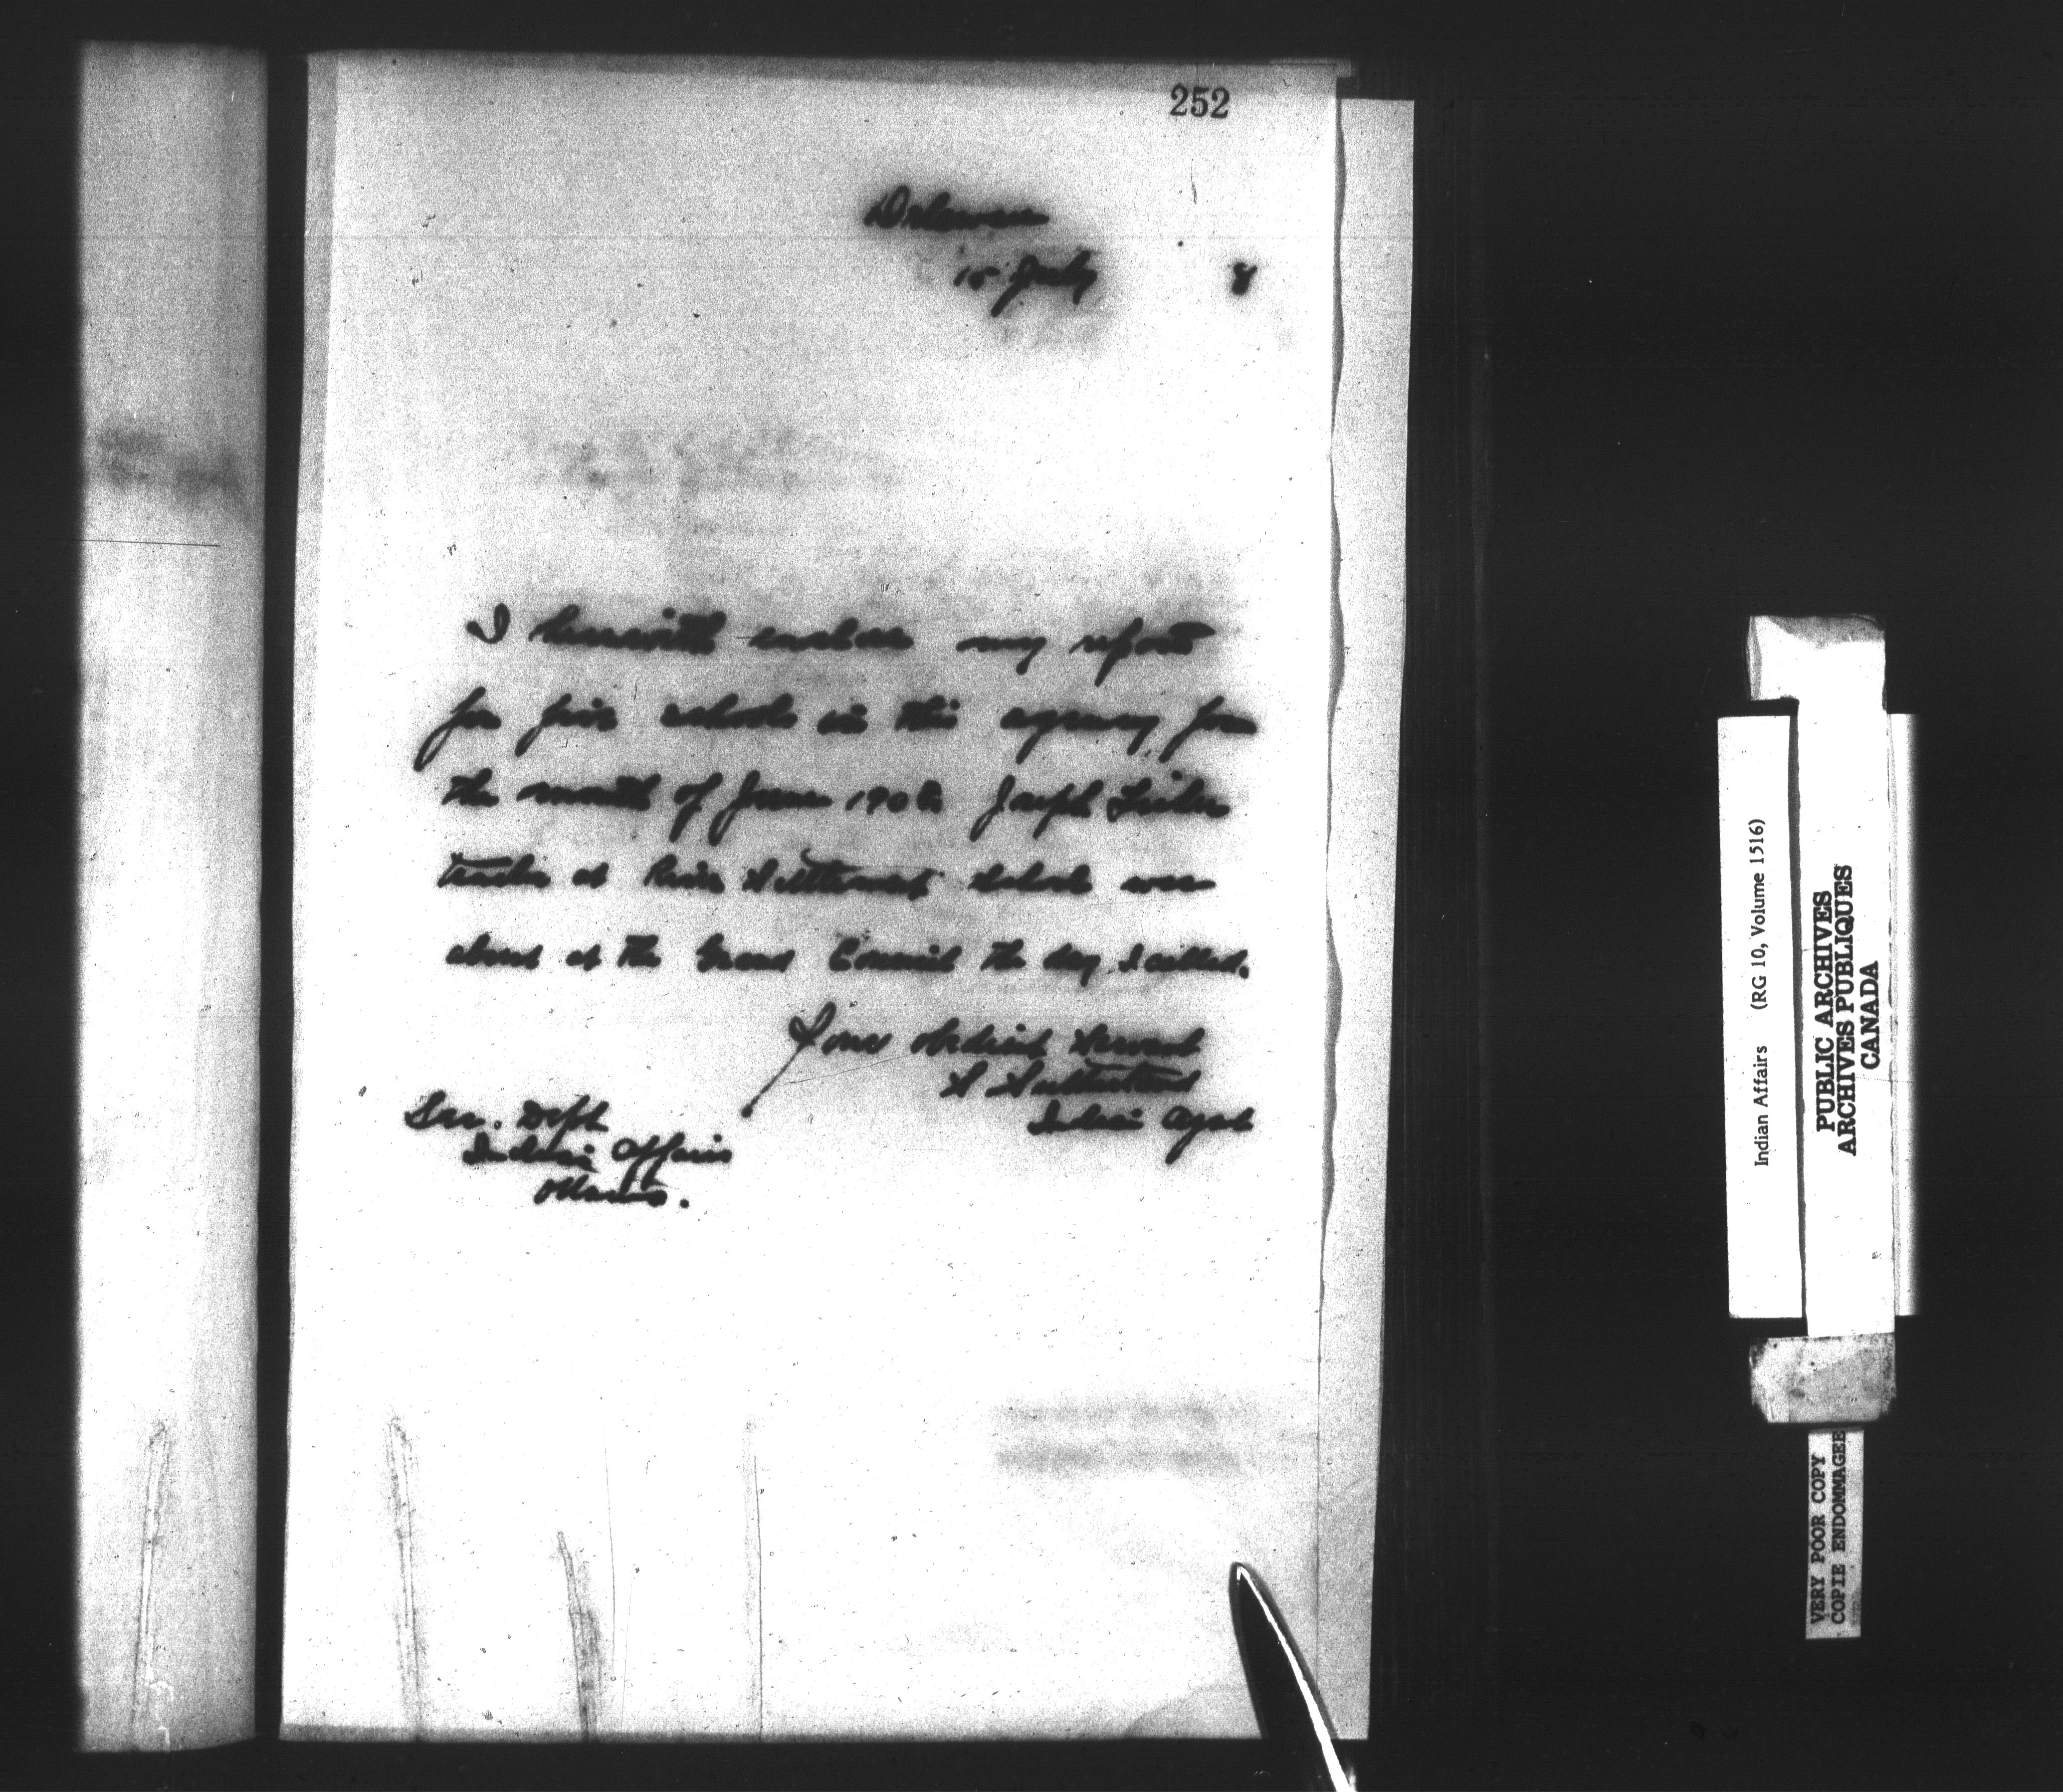 252
Delaware
15 July 8
I herewith enclose my report
for five schools in this agency for
the month of June 1908. Joseph Fisher
teacher at River Settlement School was
absent at the Grand Council the day I called.
Your obedient Servant
S Sutherland
Indian Agent
Sec. Dept
Indian Affairs
Ottawa.
Indian Affairs (RG 10, Volume 1516)
PUBLIC ARCHIVES
ARCHIVES PUBLIQUES
CANADA
VERY POOR COPY
COPIE ENDOMMAGEE